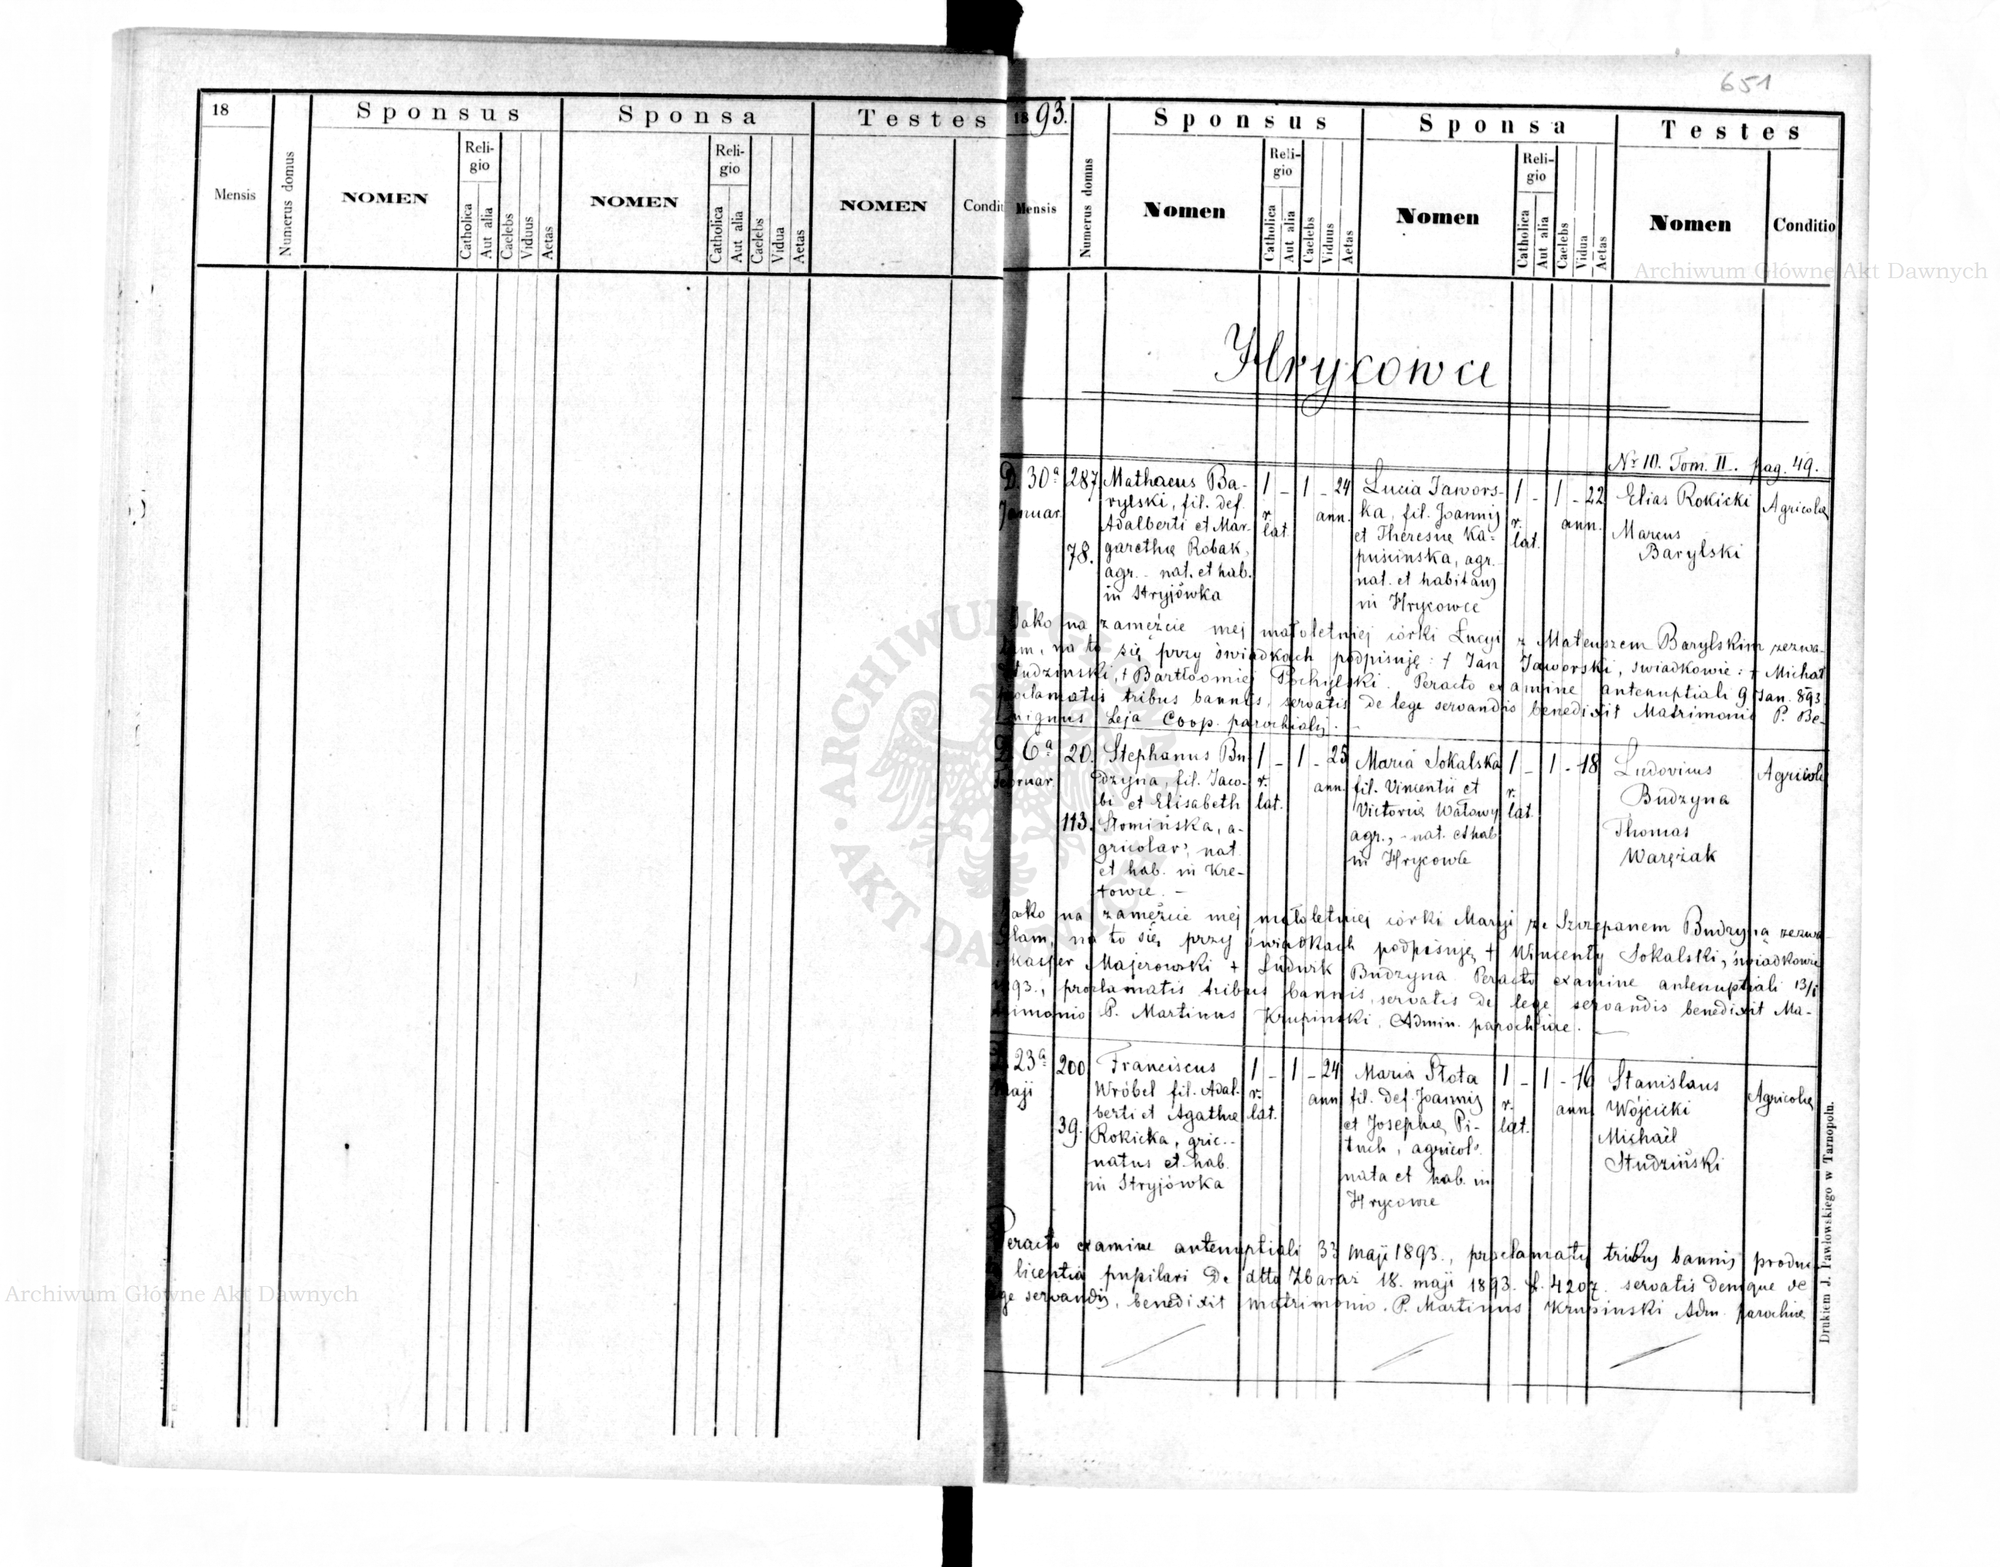 651
18
Sponsus
Sponsa
Testes
Mensis
Numerus domus
NOMEN
Religio
Catholica
Aut alia
Caelebs
Viduus
Aetas
NOMEN
Religio
Catholica
Aut alia
Caelebs
Vidua
Aetas
NOMEN
Condi
1893.
Sponsus
Sponsa
Testes
Mensis
Numerus domus
Nomen
Religio
Catholica
Aut alia
Caelebs
Viduus
Aetas
Nomen
Religio
Catholica
Aut alia
Caelebs
Vidua
Aetas
Nomen
Conditio
Hrycowce
Nr 10. Tom. II. pag. 49.
D. 30ª
Januar.
287
78.
Mathaeus Ba-
rylski, fil. def.
Adalberti et Mar-
garethae Robak,
agr. - nat. et hab.
in Stryjówka
1 - 1 - 24
r. lat. ann.
Lucia Jawors-
ka, fil. Joannis
et Theresiae Ka-
puścinska, agr.
nat. et habitans
in Hrycowce
1 - 1 - 22
r. lat. ann.
Elias Rokicki
Marcus
Barylski
Agricolae
Jako na zamężcie mej małoletniej córki Łucyi z Mateuszem Barylskim zezwa-
lam, na to się przy świadkach podpisuję: † Jan Jaworski, świadkowie: † Michał
Studzinski, † Bartłoomiej Pochylski. Peracto examine antenuptiali 9 Jan. 893.
proclamatis tribus bannis, servatis de lege servandis benedixit Matrimonio P. Be-
nignus Leja Coop. parochialis. -
D. 6ª
Februar.
20.
113.
Stephanus Bu-
dzyna, fil. Jaco-
bi et Elisabeth
Słomińska, a-
gricolar. nat.
et hab. in Kre-
towce. -
1 - 1 - 25
r. lat. ann.
Maria Sokalska
fil. Vincentii et
Victoriae Watowy
agr., - nat. et hab
in Hrycowce
1 - 1 - 18
r. lat.
Ludovicus
Budzyna
Thomas
Warężak
Agricolae
Jako na zamężcie mej małoletniej córki Maryi ze Szczepanem Budzyną zezwa-
lam, na to się przy świadkach podpisuję † Wincenty Sokalski, świadkowie
Kasper Majerowski † Ludwik Budzyna. Peracto examine antenuptiali 13/1
893., proclamatis tribus bannis, servatis de lege servandis benedixit Ma-
trimonio P. Martinus Krupinski, Admin. parochiae. -
D. 23ª
Maji
200
39.
Franciscus
Wróbel fil. Adal-
berti et Agathae
Rokicka, gric..
natus et hab.
in Stryjówka
1 - 1 - 24
r. lat. ann
Maria Płota
fil. def. Joannis
et Josephae Pi-
tuch, agricol.
nata et hab. in
Hrycowce
1 - 1 - 16
r. lat. ann
Stanislaus
Wójcicki
Michaël
Studziński
Agricolae
Peracto examine antenuptiali 33 maji 1893., proclamatis tribus bannis produc
licentia pupilari de dtto Zbaraż 18. maji 1893. L. 4207. servatis denique de
lege servandis, benedixit matrimonio. P. Martinus Krupinski Adm. parochiae
Drukiem J. Pawłowskiego w Tarnopolu.
Archiwum Główne Akt Dawnych
Archiwum Główne Akt Dawnych
ARCHIWUM GŁÓWNE AKT DAWNYCH